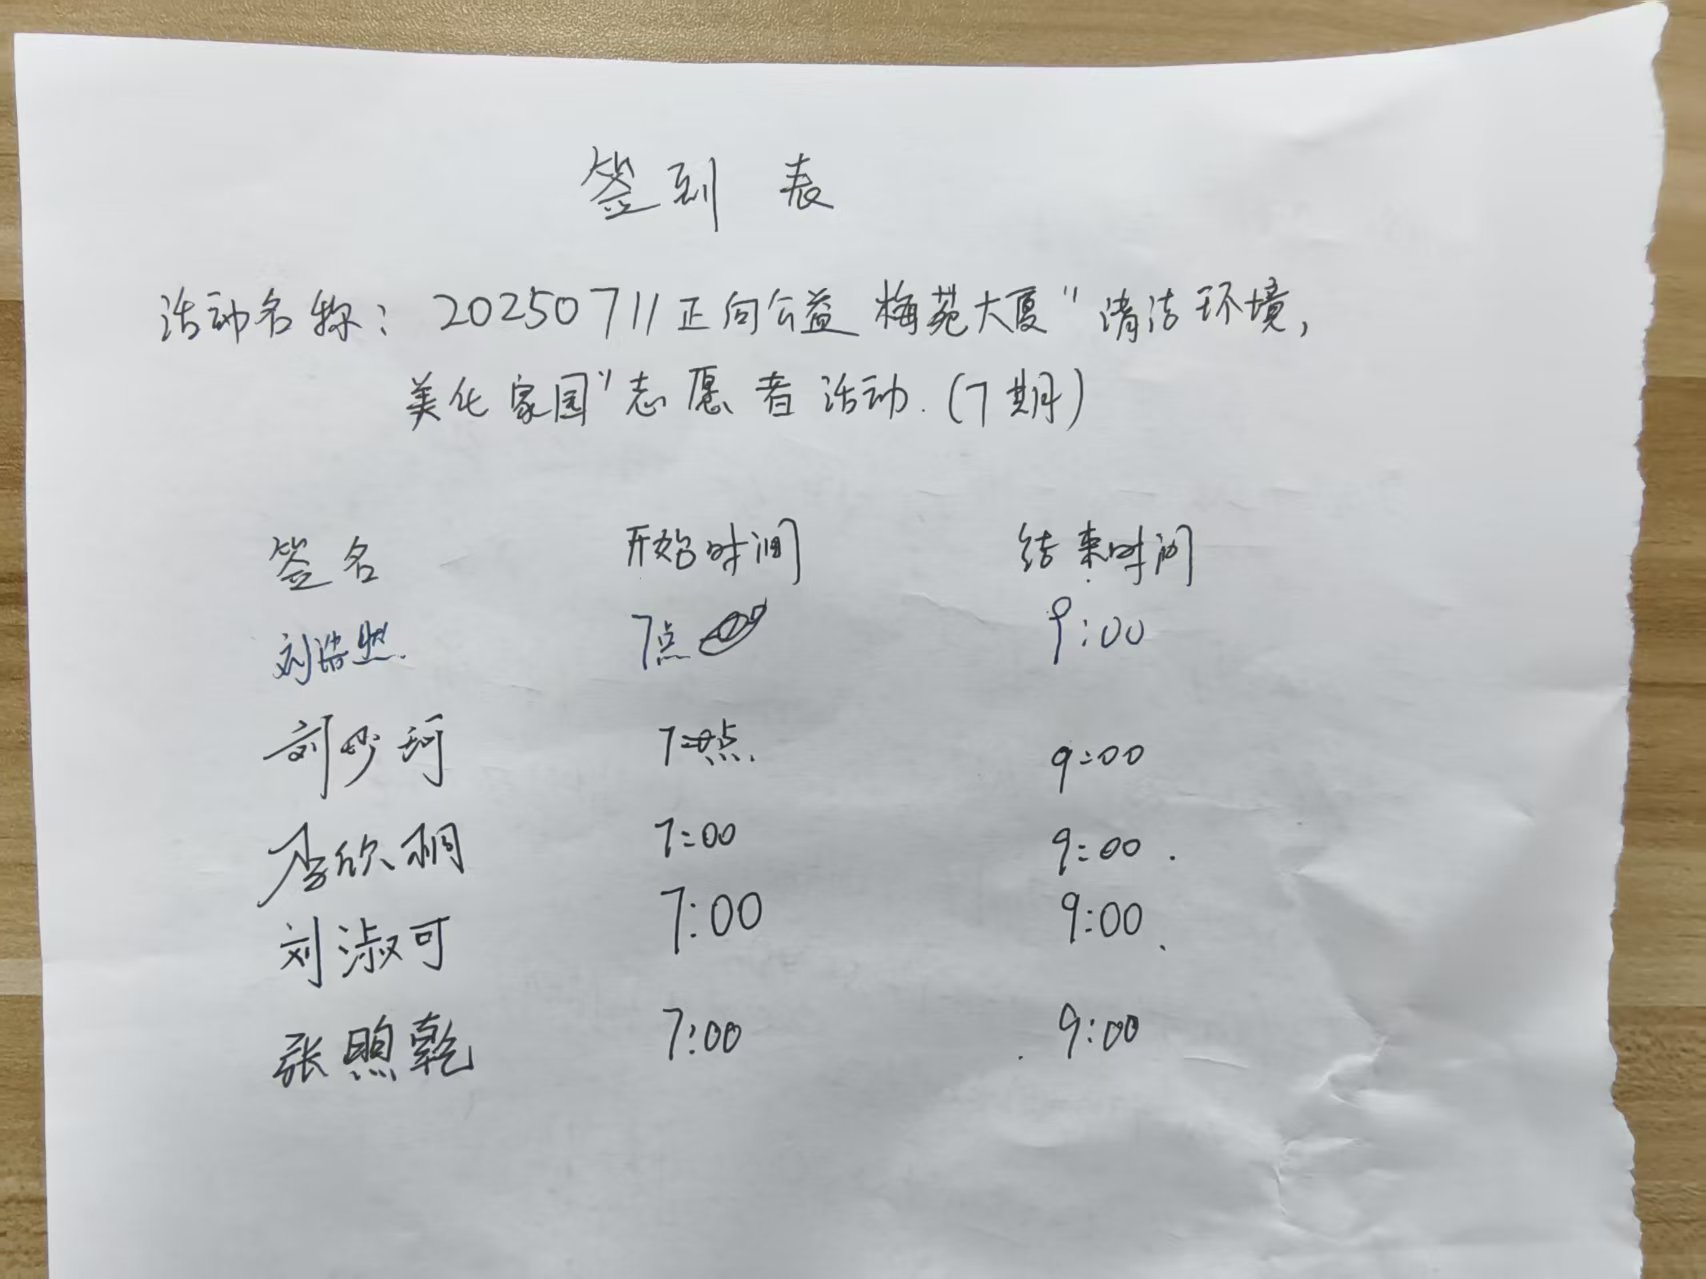 签到表
活动名称：20250711正向公益 梅苑大厦"清洁环境,
美化家园"志愿者活动.(7期)
签名 开始时间 结束时间
刘浩然. 7点 9:00
刘妙珂 7点. 9:00
李欣桐 7:00 9:00.
刘淑可 7:00 9:00
张煦乾 7:00 9:00